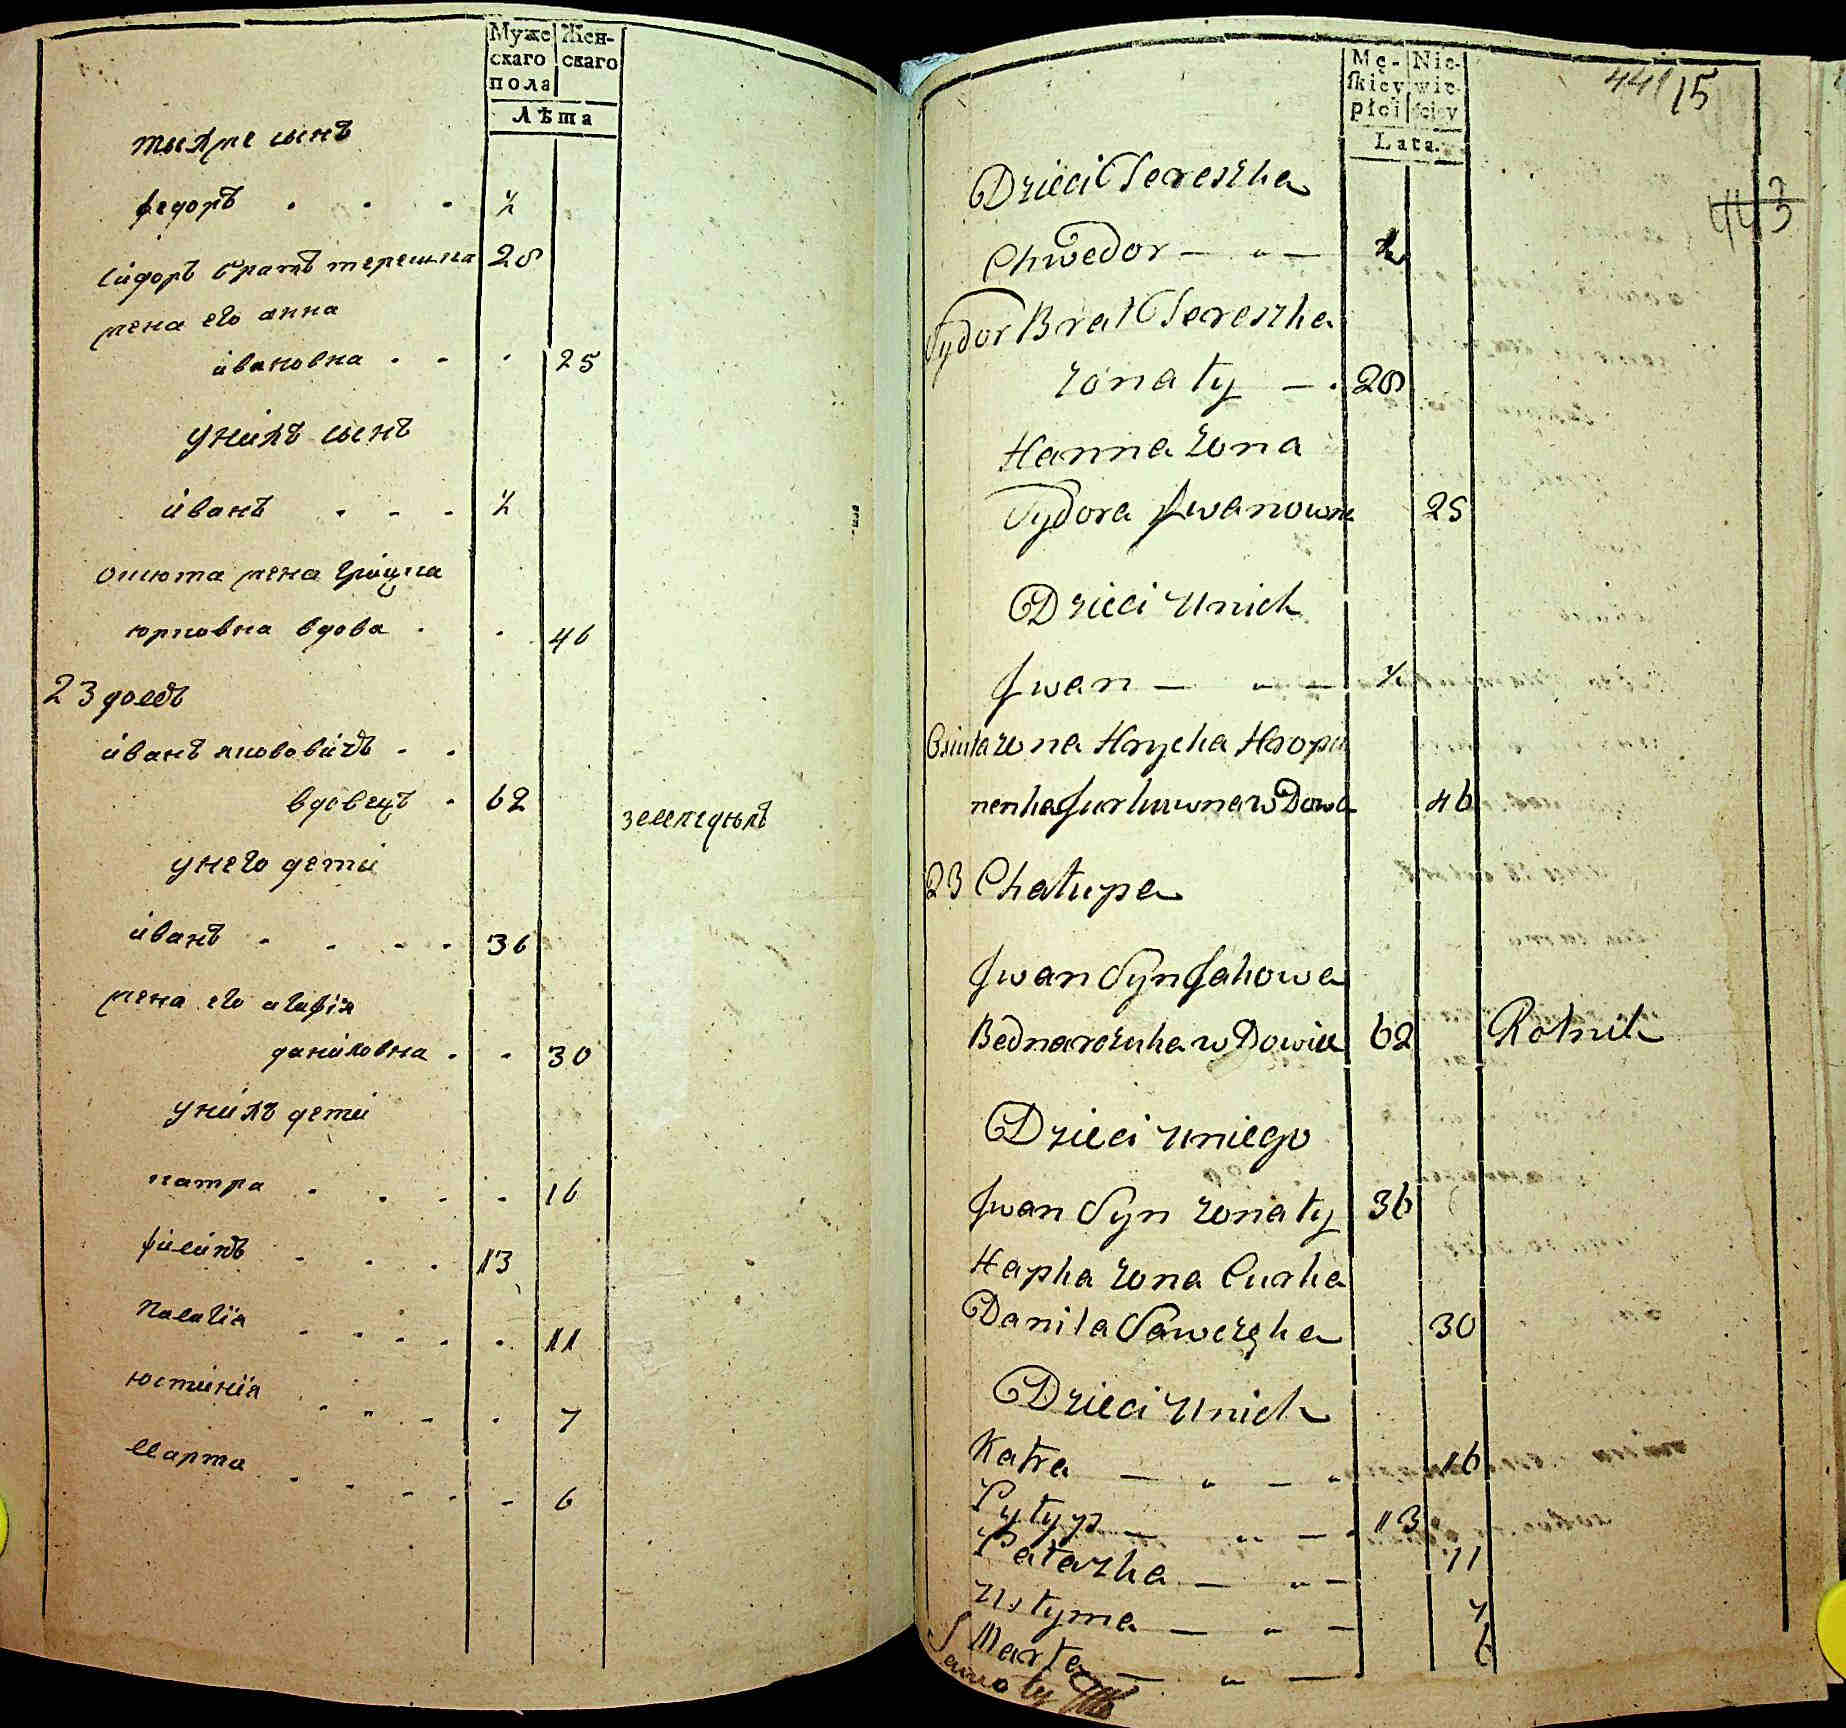 Муже
скаго
пола
Жен-
скаго
Лѣта
тыхже сынъ
федоръ . . . ½
сидоръ братъ терешка 28
жена его анна
ивановна . . . 25
унихъ сынъ
иванъ . . . ½
жена грицка
юрковна вдова . . 46
23 домъ
иванъ яковович . .
вдовецъ . 62 земледелъ
унего дети
иванъ . . . . 36
жена его агафiя
даниловна . . 30
унихъ дети
катра . . . . 16
филипъ . . . 13
палагiя . . . . . 11
юстинiя . . . . 7
марта . . . . . 6
Mę-
skiey
płci
Nie-
wie-
ściey
Lata.
441 15
443
Dzieci Tereszka
Chwedor — „ — ½
Sydor Brat Tereszka
żonaty — . 28
Hanna żona
Sydora Jwanowna 25
Dzieci unich
Jwan — „ — ½
Osiuta żona Hrycka
Jurkuwna wDowa 46
23 Chałupa
Jwan Syn Jakowa
Bednarczuka wDowiec 62 Rolnik
Dzieci uniego
Jwan Syn żonaty 36
Hapka żona Curka
Daniła 30
Dzieci unich
Katra — „ — „ 16
Pyłyp — „ — . 13
Pałażka — „ — 11
Ustyma — „ — 7
Marta — „ — 6